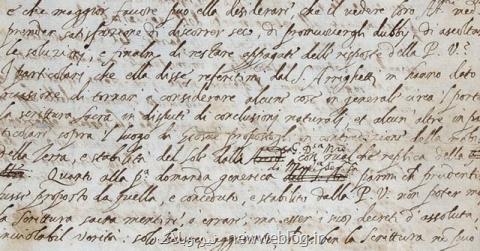 e che maggior favore puo ella desiderare, che il vedere loro
prender satisfazione di discorrer seco, di promuovergli dubbi, di ascoltar
le soluzioni, e finalm. di restar appagate delle risposte della P. V.
I particolari che ella disse, referitimi dal S. Arrighetti, mi hanno dato
occasione di tornar a considerare alcune cose in generale circa 'l portar
la scrittura sacra in dispute di conclusioni naturali, et alcun' altre in par
ticolari sopra 'l luogo di Giosue propostoli, in contradizione della
della Terra, e stabilità del sole dalla con qualche replica della
Quanto alla pa. domanda generica parmi che prudentis
fusse proposto da quella, e conceduto, e stabilito dalla P. V. non poter mai
la Scrittura sacra mentire, o errar, ma esser i suoi decreti d'assoluta
inviolabil verità. solo aggiunto, che se ben la Scrittura non può
newweblog.ir